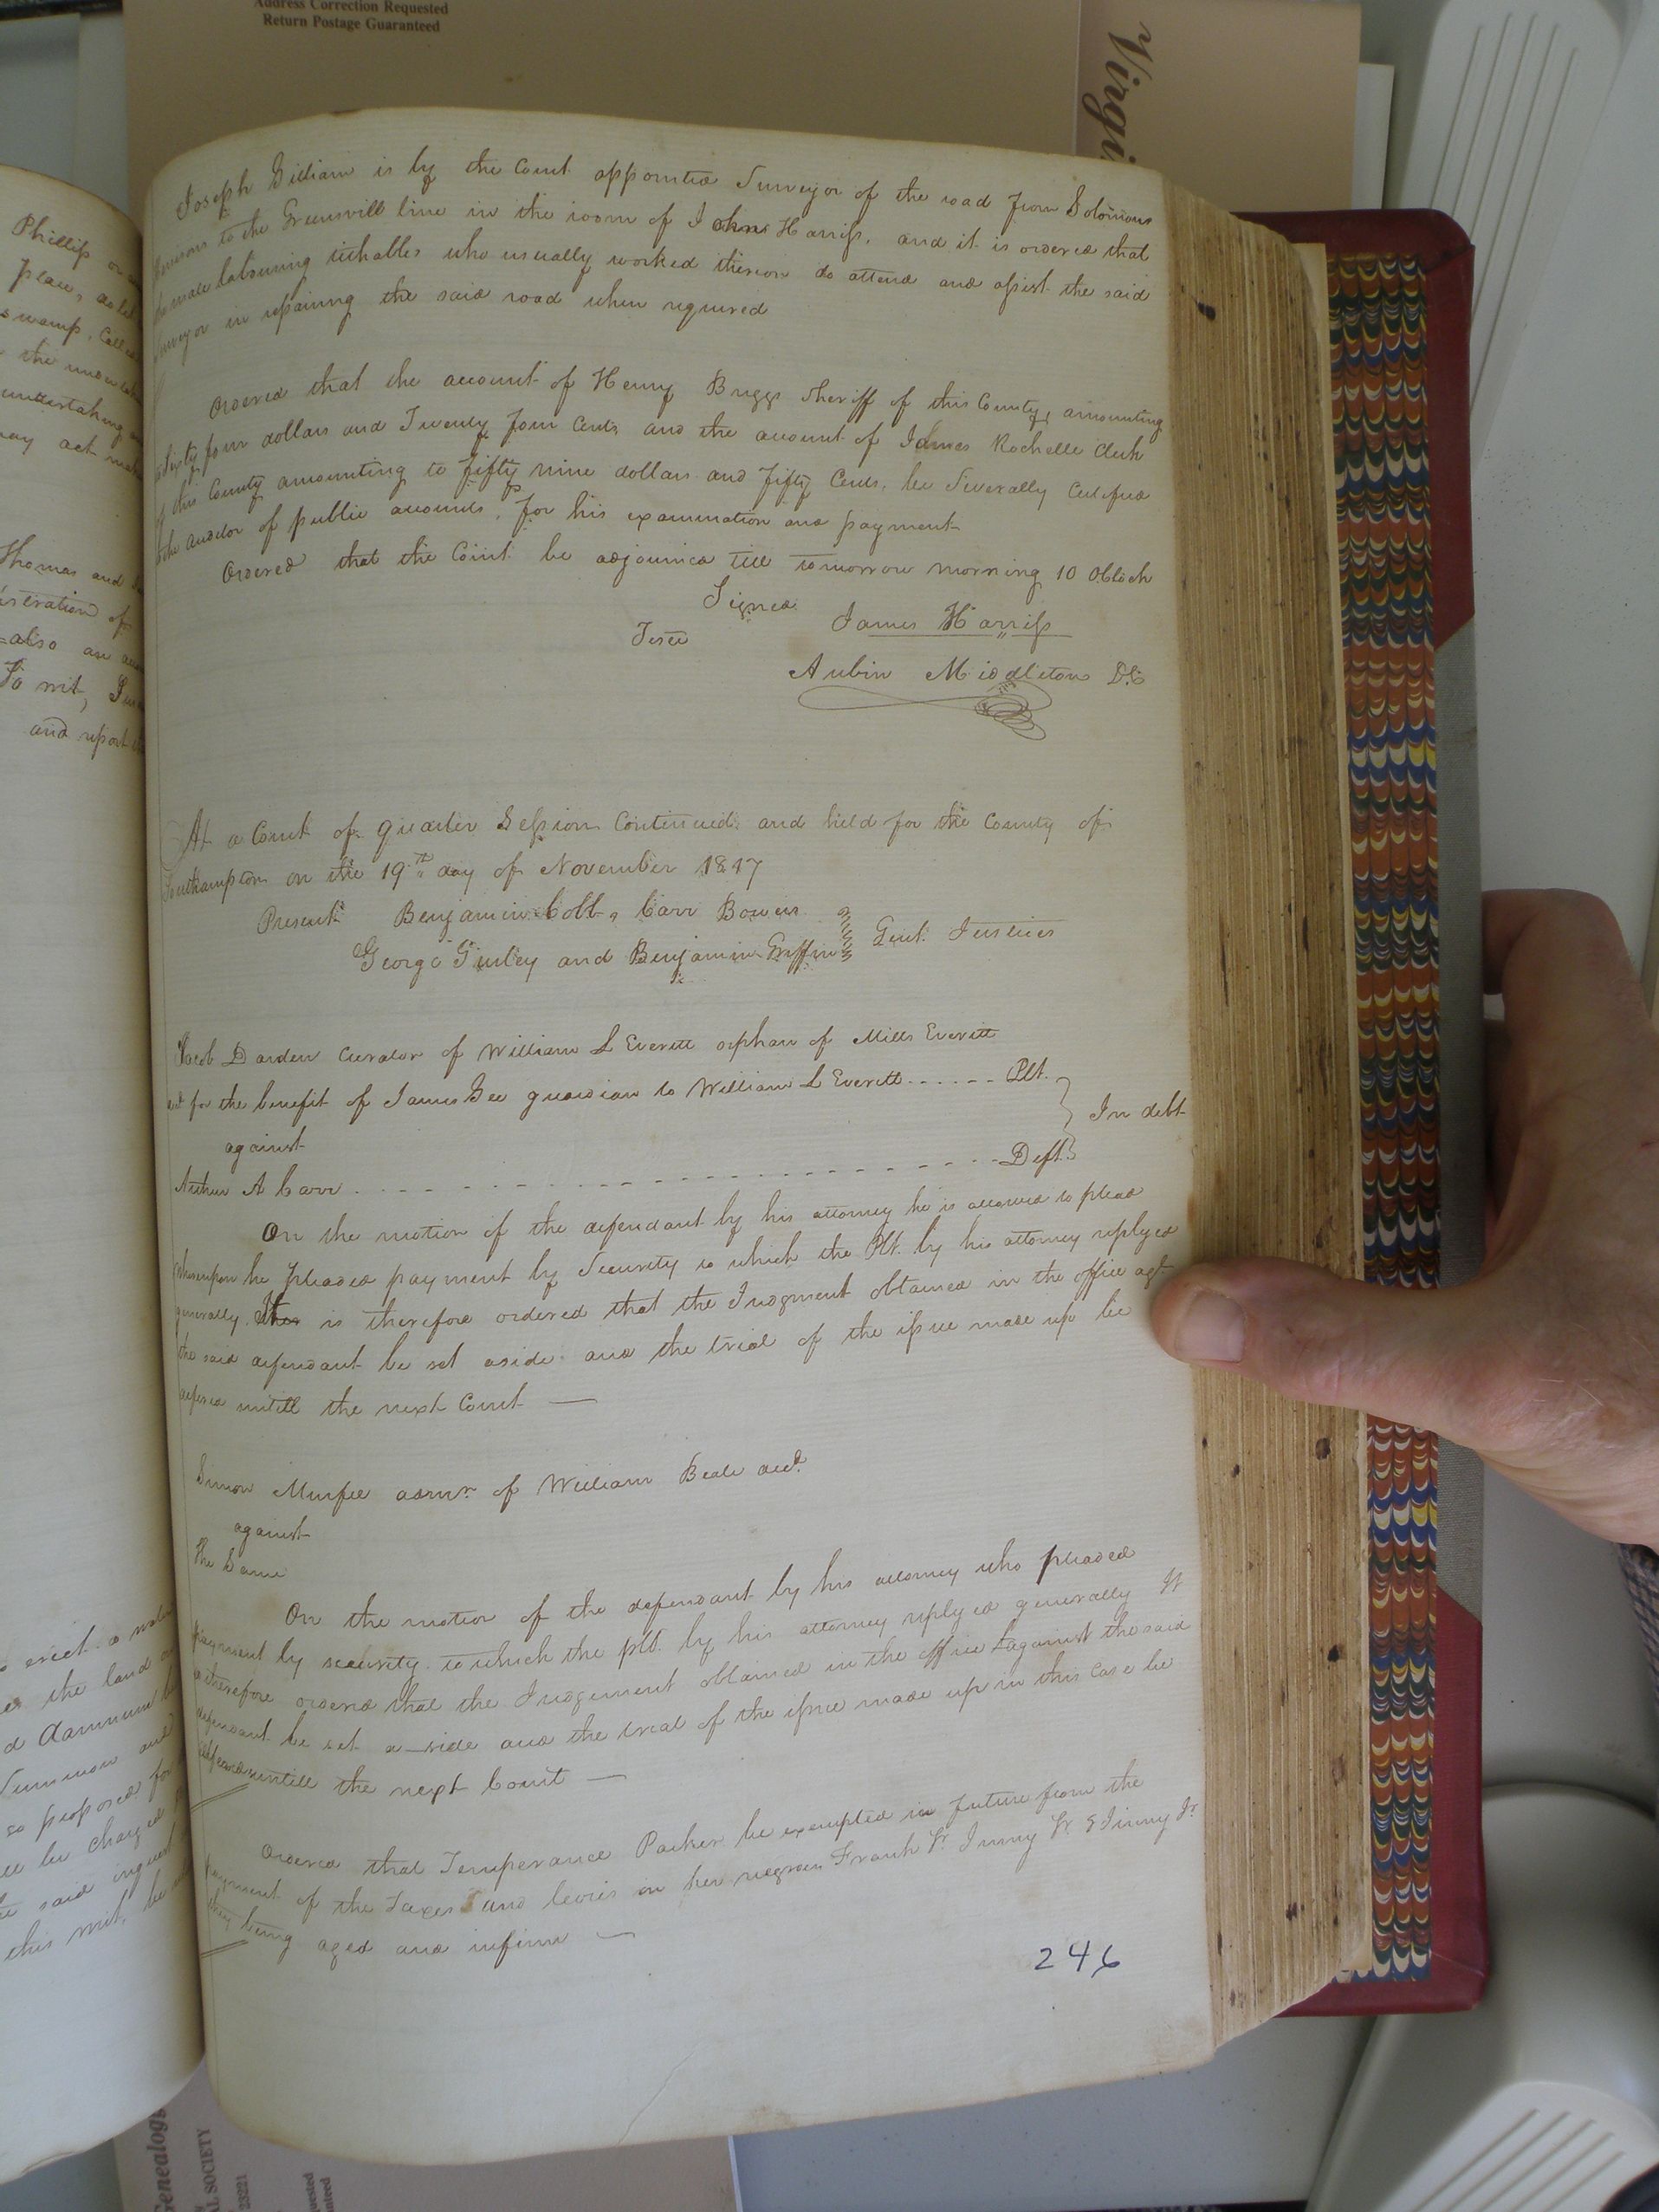 Address Correction Requested
Return Postage Guaranteed
Virgi
Phillip or
place, as
swamp, Called
the
undertaking
may act
Thomas and
of
also an
To wit,
and report
erect a
the land
d damnum
Summon
so proposed for
be charged
said inquest
this writ, be
Joseph Gilliam is by the Court appointed Surveyor of the road from Solomons
to the Greensvill line in the room of John Harriss, and it is ordered that
male labouring tithables who usually worked thereon do attend and assist the said
Surveyor in repairing the said road when required
Ordered that the account of Henry Briggs Sheriff of this County, amounting
Sixty four dollars and Twenty four Cents and the account of James Rochelle Clerk
of this County amounting to fifty nine dollars and fifty Cents, be Severally Certified
to the auditor of public accounts, for his examination and payment
Ordered that the Court be adjourned till tomorrow morning 10 OClock
Signed
James Harriss
Teste
Aubin Middleton D.C
At a Court of Quarter Session Continued and held for the County of
Southampton on the 19th day of November 1817
Present Benjamin Cobb, Carr Bowers
George Gurley and Benjamin Griffin Gent. Justices
Jacob Darden Curator of William L Everitt orphan of Mills Everitt
for the benefit of James Gee guardian to William L Everitt ...... Plt.
In debt
against
Arthur A Carr - - - - - - - - - - Deft.
On the motion of the defendant by his attorney he is allowed to plead
whereupon he pleaded payment by Security to which the Plt. by his attorney replyed
generally. It is therefore ordered that the Judgment obtained in the office agt
the said defendant be set aside and the trial of the issue made up be
defered untill the next Court —
Simon Murfee admr. of William Beale decd.
against
The Same
On the motion of the defendant by his attorney who pleaded
payment by security to which the plt. by his attorney replyed generally It
is therefore ordered that the Judgement obtained in the office against the said
defendant be set a-side and the trial of the issue made up in this Case be
defered untill the next Court —
Ordered that Temperance Parker be exempted in future from the
payment of the Taxes and levies on her negroes Frank Sr. Jinny Sr. & Jinny Jr.
they being aged and infirm —
246
Genealog
AL SOCIETY
23221
quested
nteed